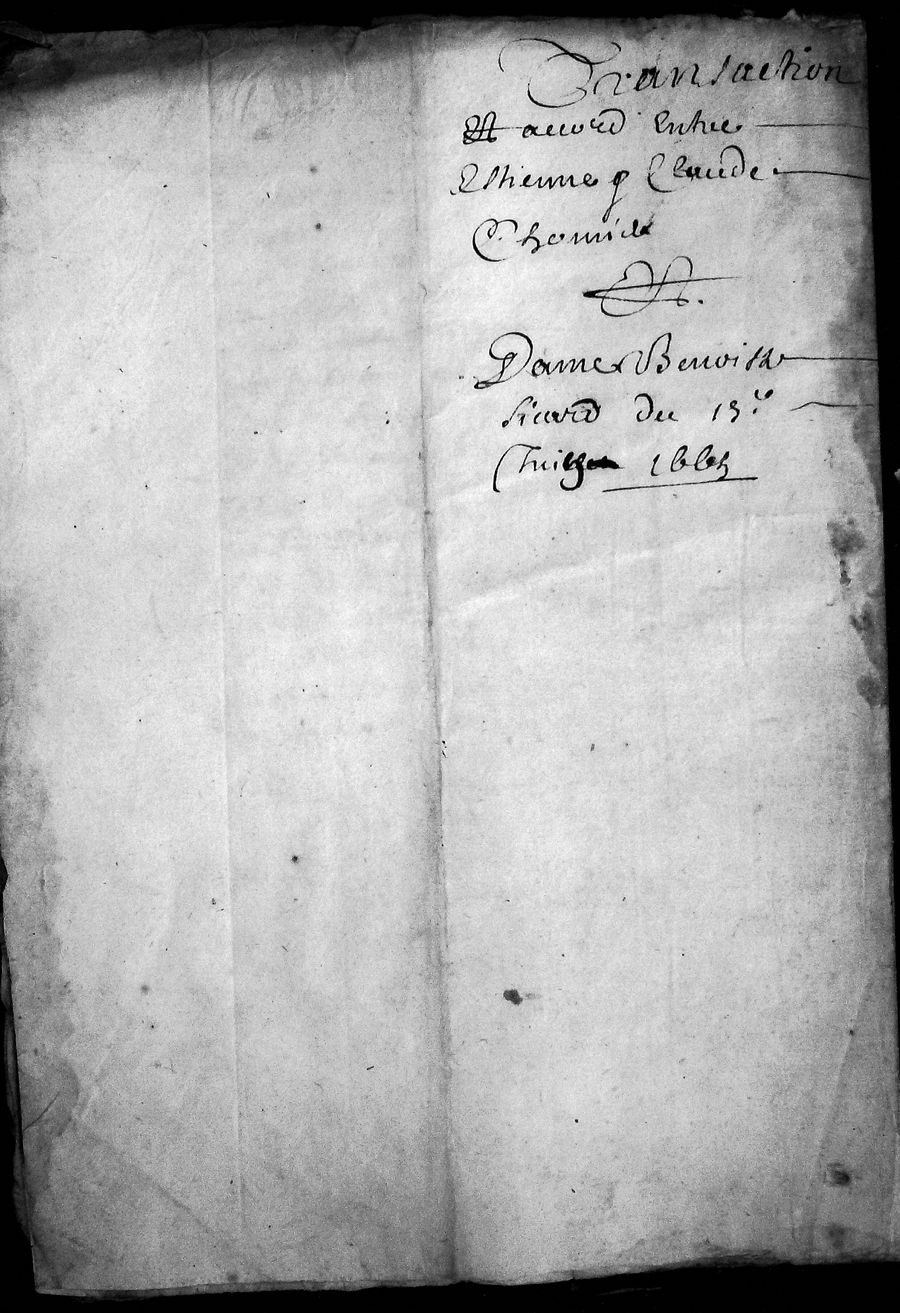 Transaction
Et accord Entre
Estienne & Claude
Chomict
Et
Dame Benoiste
sicard du 13.e
Juillet 1665